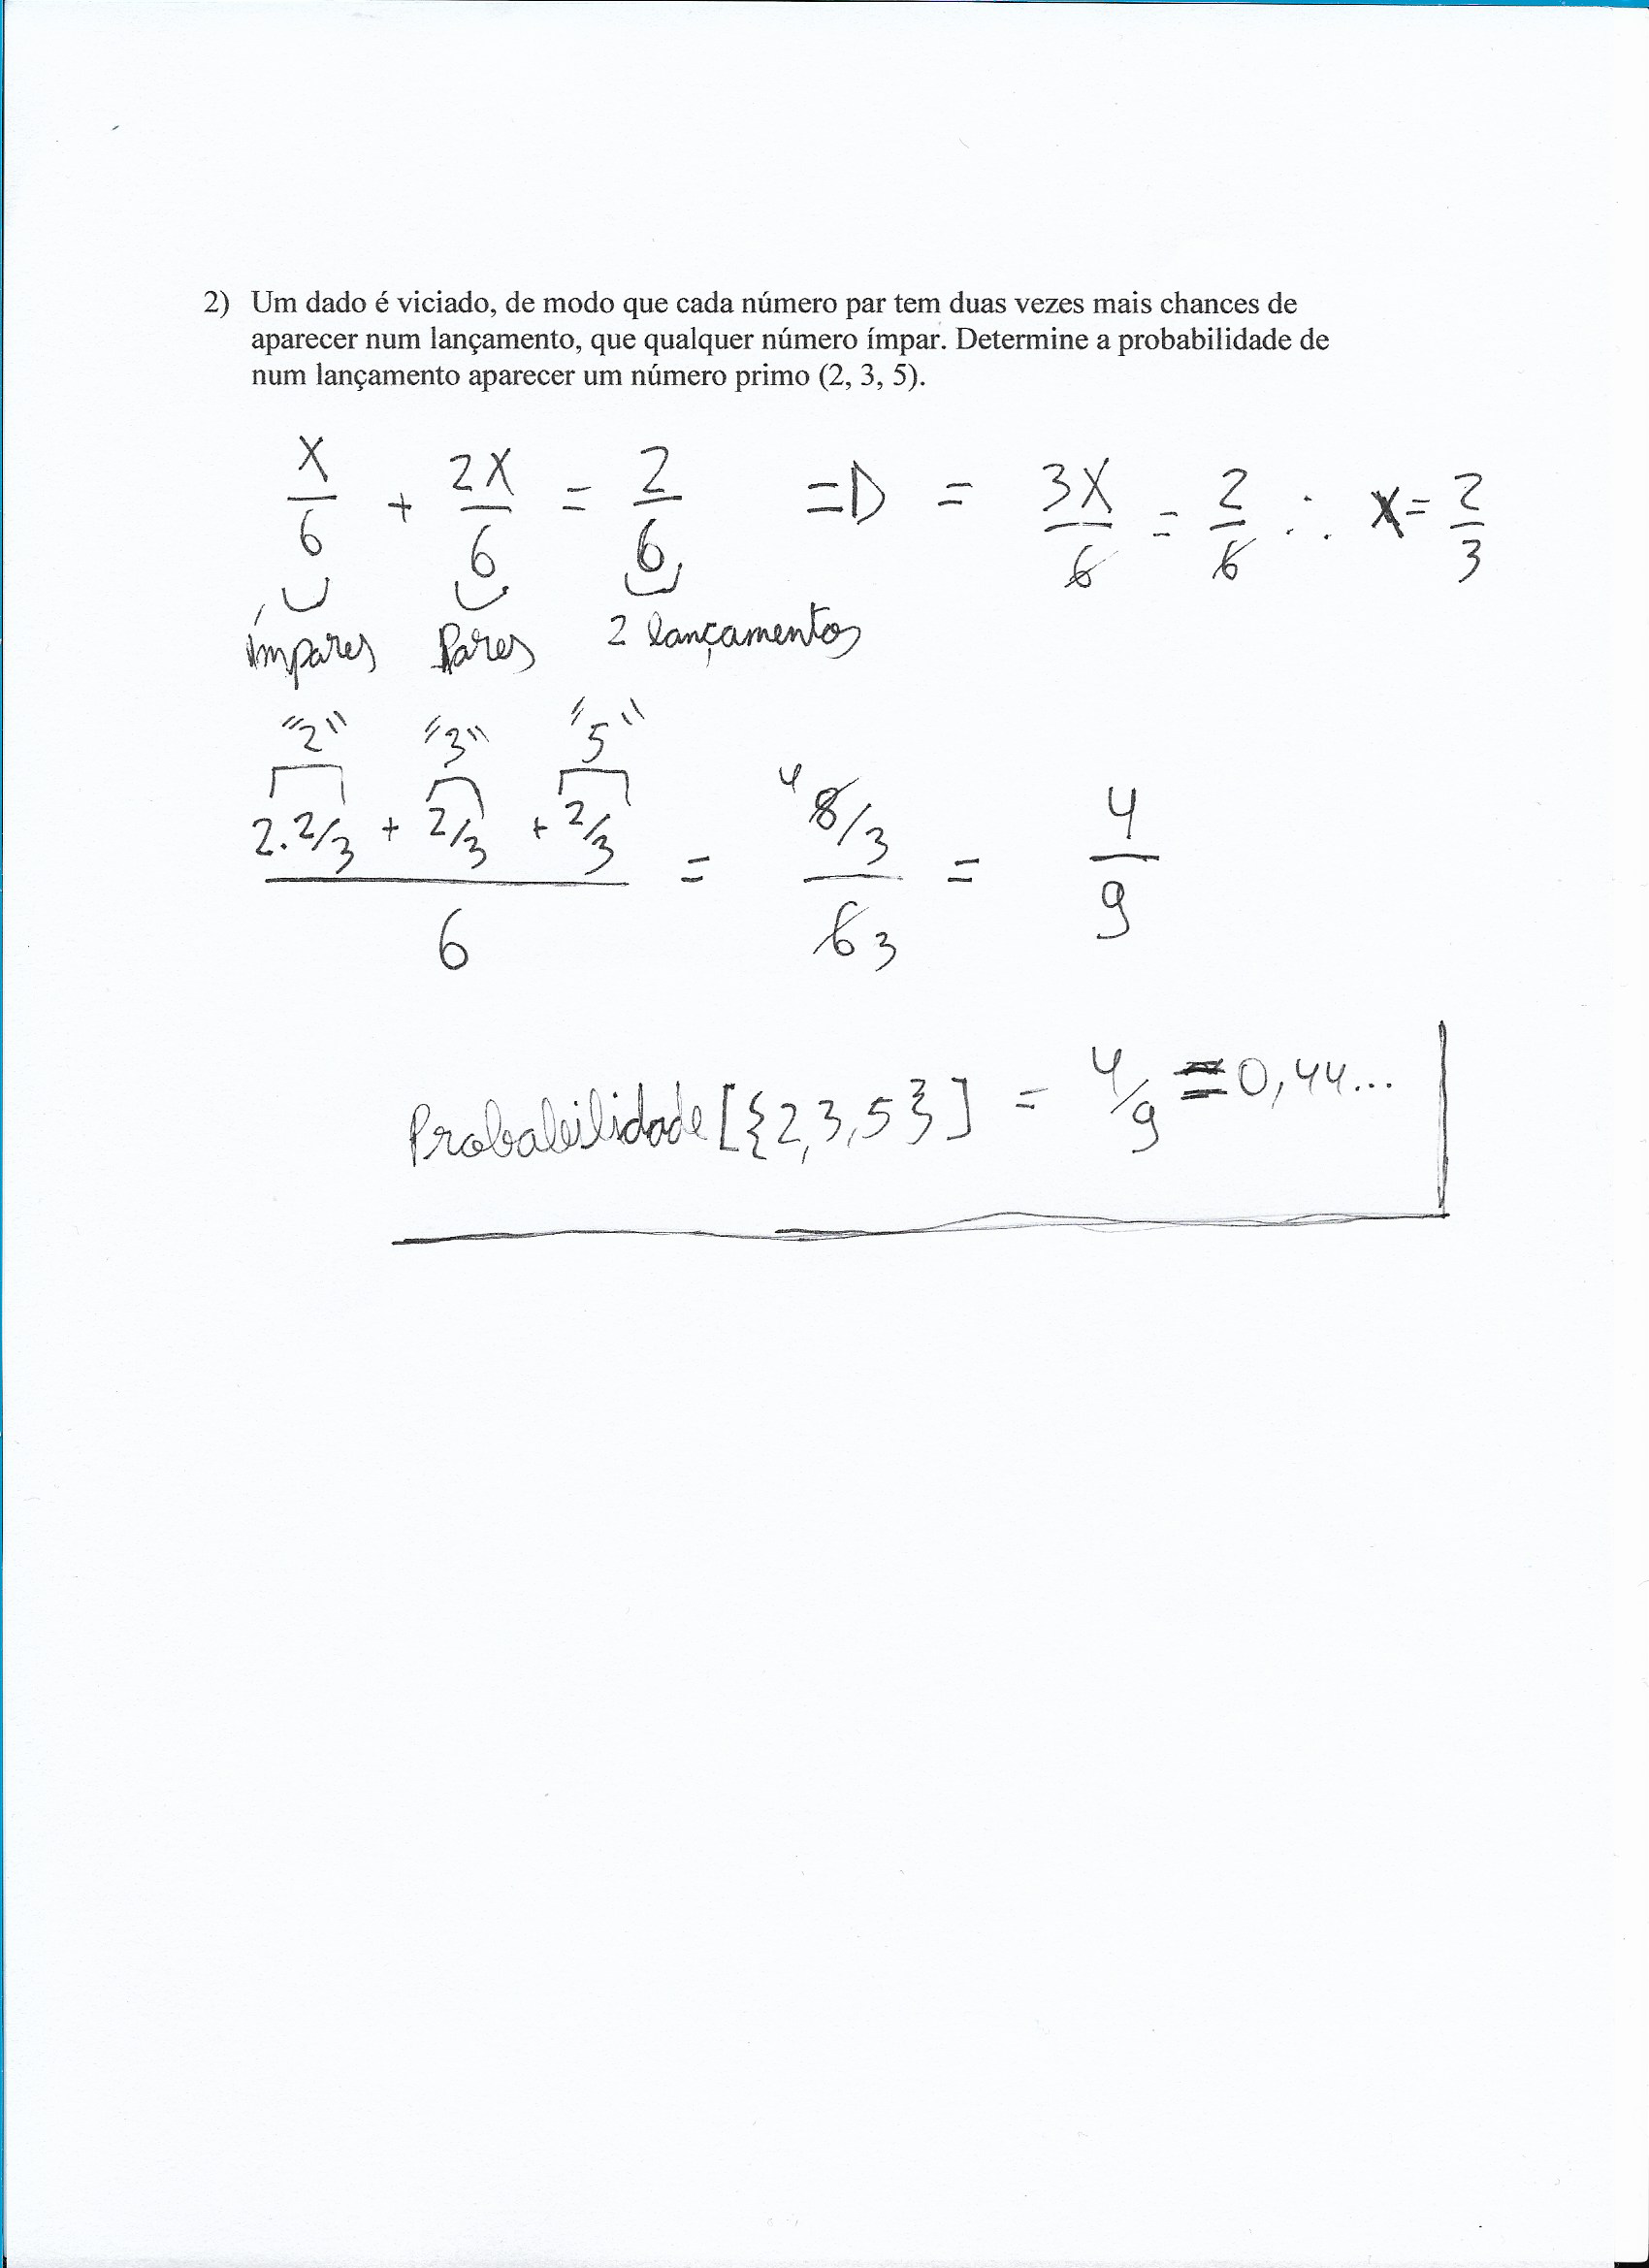 2) Um dado é viciado, de modo que cada número par tem duas vezes mais chances de
aparecer num lançamento, que qualquer número ímpar. Determine a probabilidade de
num lançamento aparecer um número primo (2, 3, 5).
x/6 + 2x/6 = 2/6 => = 3x/6 = 2/6 ∴ x = 2/3
ímpares Pares 2 lançamentos
"2" "3" "5"
2.2/3 + 2/3 + 2/3 = 4 8/3 = 4
6 6 3 9
Probabilidade [{2,3,5}] = 4/9 = 0,44...